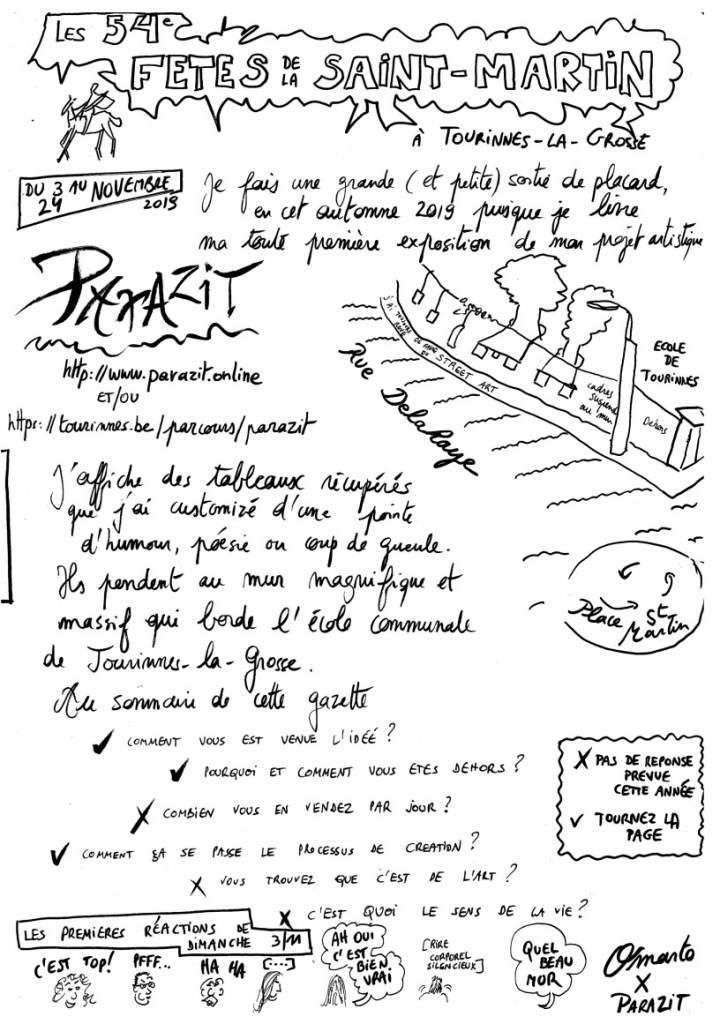 LES 54e
FETES DE LA SAINT-MARTIN
À TOURINNES-LA-GROSSE
DU 3 AU NOVEMBRE
24 2019
Je fais une grande (et petite) sortie de placard,
en cet automne 2019 puisque je livre
ma toute première exposition de mon projet artistique
PARAZIT
http://www.parazit.online
ET/OU
https://tourinnes.be/parcours/parazit
STREET ART
RUE DelaHaye
cadres
suspendus
au mur
Dehors
ECOLE
DE
TOURINNES
Place St
Martin
J'affiche des tableaux récupérés
que j'ai customizé d'une pointe
d'humour, poésie ou coup de gueule.
Ils pendent au mur magnifique et
massif qui borde l'école communale
de Tourinnes-la-Grosse.
Au sommaire de cette gazette
✓ COMMENT VOUS EST VENUE L'IDÉE ?
✓ POURQUOI ET COMMENT VOUS ETES DEHORS ?
X COMBIEN VOUS EN VENDEZ PAR JOUR ?
✓ COMMENT ÇA SE PASSE LE PROCESSUS DE CREATION ?
X VOUS TROUVEZ QUE C'EST DE L'ART ?
X C'EST QUOI LE SENS DE LA VIE ?
X PAS DE REPONSE
PREVUE
CETTE ANNÉE
✓ TOURNEZ LA
PAGE
LES PREMIÈRES RÉACTIONS DE
DIMANCHE 3/11
C'EST TOP!
PFFF...
HA HA
[...]
AH OUI
C'EST
BIEN
VRAI
[RIRE
CORPOREL
SILENCIEUX]
QUEL
BEAU
MUR
Omarto
X
PARAZIT